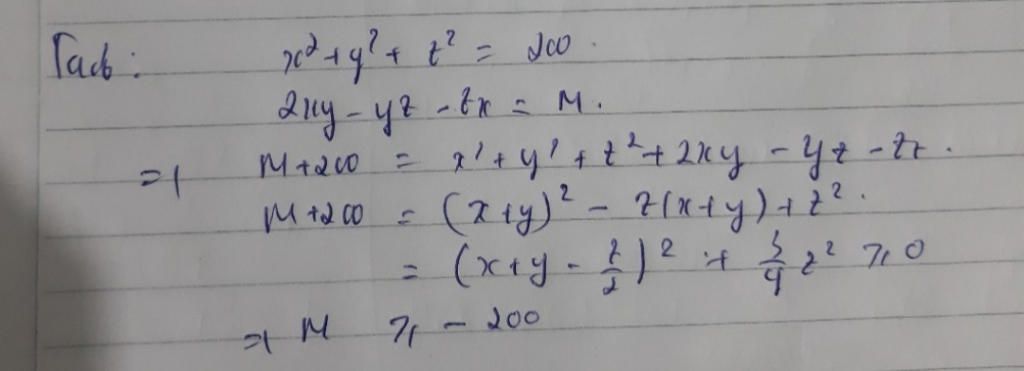 Ta có: x² + y² + z² = 200.
2xy - yz - zx = M.
=> M+200 = x² + y² + z² + 2xy - yz - zx.
M+200 = (x+y)² - z(x+y) + z².
= (x+y - z/2)² + 3/4 z² ≥ 0
=> M ≥ - 200